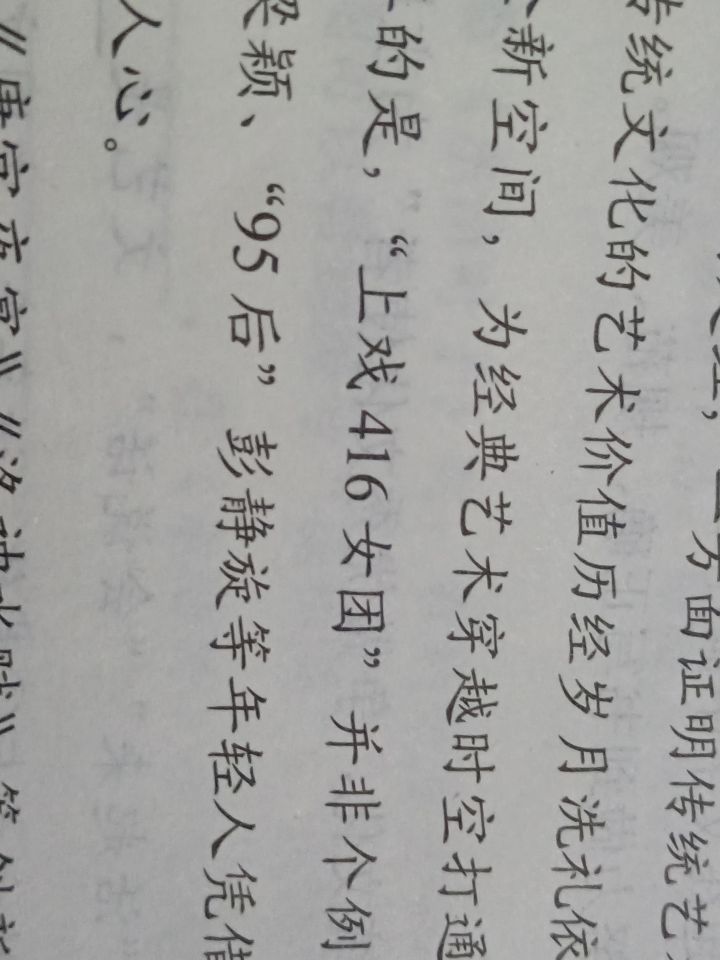 方面证明传统艺
传统文化的艺术价值历经岁月洗礼依
新空间，为经典艺术穿越时空打通
的是，“上戏416女团”并非个例
颖、“95后”彭静旋等年轻人凭借
人心。
《唐宫夜宴》《洛神水赋》等创新